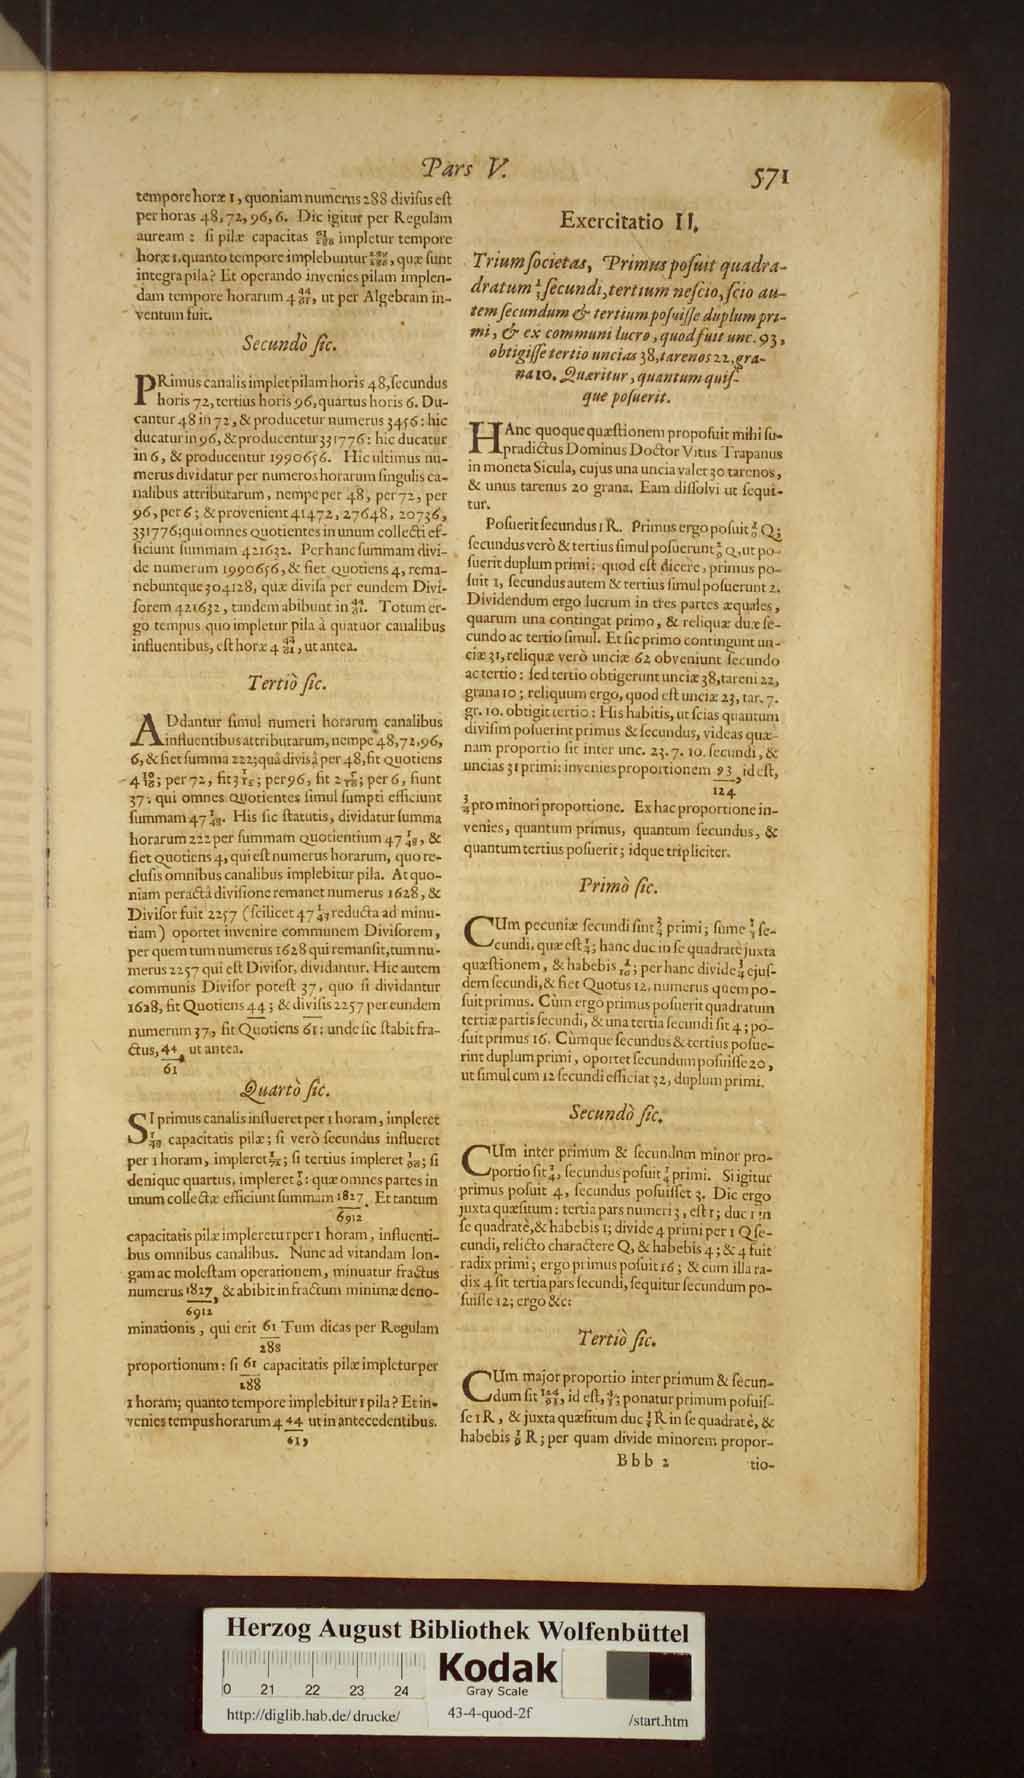 Pars V.
571
tempore horæ 1, quoniam numerus 288 divisus est
per horas 48, 72, 96, 6. Dic igitur per Regulam
auream : si pilæ capacitas 61/288 impletur tempore
horæ 1. quanto tempore implebuntur 288/288, quæ sunt
integra pila? Et operando invenies pilam implen-
dam tempore horarum 4 44/61, ut per Algebram in-
ventum fuit.
Secundò sic.
PRimus canalis implet pilam horis 48, secundus
horis 72, tertius horis 96, quartus horis 6. Du-
cantur 48 in 72, & producetur numerus 3456 : hic
ducatur in 96, & producentur 331776 : hic ducatur
in 6, & producentur 1990656. Hic ultimus nu-
merus dividatur per numeros horarum singulis ca-
nalibus attributarum, nempe per 48, per 72, per
96, per 6 ; & provenient 41472, 27648, 20736,
331776; qui omnes Quotientes in unum collecti ef-
ficiunt summam 421632. Per hanc summam divi-
de numerum 1990656, & fiet Quotiens 4, rema-
nebuntque 304128, quæ divisa per eundem Divi-
sorem 421632, tandem abibunt in 44/61. Totum er-
go tempus quo impletur pila à quatuor canalibus
influentibus, est horæ 4 44/61, ut antea.
Tertiò sic.
ADdantur simul numeri horarum canalibus
influentibus attributarum, nempe 48, 72, 96,
6, & fiet summa 222; quâ divisâ per 48, fit Quotiens
4 10/16; per 72, fit 3 1/12; per 96, fit 2 5/16; per 6, fiunt
37 : qui omnes Quotientes simul sumpti efficiunt
summam 47 1/48. His sic statutis, dividatur summa
horarum 222 per summam Quotientium 47 1/48, &
fiet Quotiens 4, qui est numerus horarum, quo re-
clusis omnibus canalibus implebitur pila. At quo-
niam peractâ divisione remanet numerus 1628, &
Divisor fuit 2257 (scilicet 47 1/47 reducta ad minu-
tiam) oportet invenire communem Divisorem,
per quem tum numerus 1628 qui remansit, tum nu-
merus 2257 qui est Divisor, dividantur. Hic autem
communis Divisor potest 37, quo si dividantur
1628, fit Quotiens 44 ; & divisis 2257 per eundem
numerum 37, fit Quotiens 61 : unde sic stabit fra-
ctus, 44/61 ut antea.
Quartò sic.
SI primus canalis influeret per 1 horam, impleret
1/48 capacitatis pilæ ; si verò secundus influeret
per 1 horam, impleret 1/72 ; si tertius impleret 1/96 ; si
denique quartus, impleret 1/6 : quæ omnes partes in
unum collectæ efficiunt summam 1827/6912. Et tantum
capacitatis pilæ impleretur per 1 horam, influenti-
bus omnibus canalibus. Nunc ad vitandam lon-
gam ac molestam operationem, minuatur fractus
numerus 1827/6912, & abibit in fractum minimæ deno-
minationis, qui erit 61/288 Tum dicas per Regulam
proportionum : si 61/288 capacitatis pilæ impletur per
1 horam; quanto tempore implebitur 1 pila? Et in-
venies tempus horarum 4 44/61, ut in antecedentibus.
Exercitatio II.
Trium societas, Primus posuit quadra-
dratum 1/3 secundi, tertium nescio, scio au-
tem secundum & tertium posuisse duplum pri-
mi, & ex communi lucro, quod fuit unc. 93,
obtigisse tertio uncias 38, tarenos 22, gra-
na 10. Quæritur, quantum quis-
que posuerit.
HAnc quoque quæstionem proposuit mihi su-
pradictus Dominus Doctor Vitus Trapanus
in moneta Sicula, cujus una uncia valet 30 tarenos,
& unus tarenus 20 grana. Eam dissolvi ut sequi-
tur.
Posuerit secundus 1 R. Primus ergo posuit 1/9 Q;
secundus verò & tertius simul posuerunt 2/9 Q, ut po-
suerit duplum primi; quod est dicere, primus po-
suit 1, secundus autem & tertius simul posuerunt 2.
Dividendum ergo lucrum in tres partes æquales,
quarum una contingat primo, & reliquæ duæ se-
cundo ac tertio simul. Et sic primo contingunt un-
ciæ 31, reliquæ verò unciæ 62 obveniunt secundo
ac tertio : sed tertio obtigerunt unciæ 38, tareni 22,
grana 10 ; reliquum ergo, quod est unciæ 23, tar. 7.
gr. 10. obtigit tertio : His habitis, ut scias quantum
divisim posuerint primus & secundus, videas quæ-
nam proportio sit inter unc. 23. 7. 10. secundi, &
uncias 31 primi: invenies proportionem 93/124, id est,
3/4 pro minori proportione. Ex hac proportione in-
venies, quantum primus, quantum secundus, &
quantum tertius posuerit ; idque tripliciter.
Primò sic.
CUm pecuniæ secundi sint 3/4 primi ; sume 1/3 se-
cundi, quæ est 1/4; hanc duc in se quadratè juxta
quæstionem, & habebis 1/16 ; per hanc divide 3/4 ejus-
dem secundi, & fiet Quotus 12, numerus quem po-
suit primus. Cùm ergo primus posuerit quadratum
tertiæ partis secundi, & una tertia secundi sit 4 ; po-
suit primus 16. Cùmque secundus & tertius posue-
rint duplum primi, oportet secundum posuisse 20,
ut simul cum 12 secundi efficiat 32, duplum primi.
Secundò sic.
CUm inter primum & secundum minor pro-
portio sit 3/4, secundus posuit 3/4 primi. Si igitur
primus posuit 4, secundus posuisset 3. Dic ergo
juxta quæsitum : tertia pars numeri 3, est 1; duc 1 in
se quadratè, & habebis 1; divide 4 primi per 1 Q se-
cundi, relicto charactere Q, & habebis 4 ; & 4 fuit
radix primi ; ergo primus posuit 16 ; & cum illa ra-
dix 4 sit tertia pars secundi, sequitur secundum po-
suisse 12; ergo &c:
Tertiò sic.
CUm major proportio inter primum & secun-
dum sit 124/93, id est, 4/3; ponatur primum posuis-
se 1 R, & juxta quæsitum duc 1/3 R in se quadratè, &
habebis 1/9 R ; per quam divide minorem propor-
Bbb 2
tio-
Herzog August Bibliothek Wolfenbüttel
0 21 22 23 24
Kodak
Gray Scale
http://diglib.hab.de/drucke/
43-4-quod-2f
/start.htm